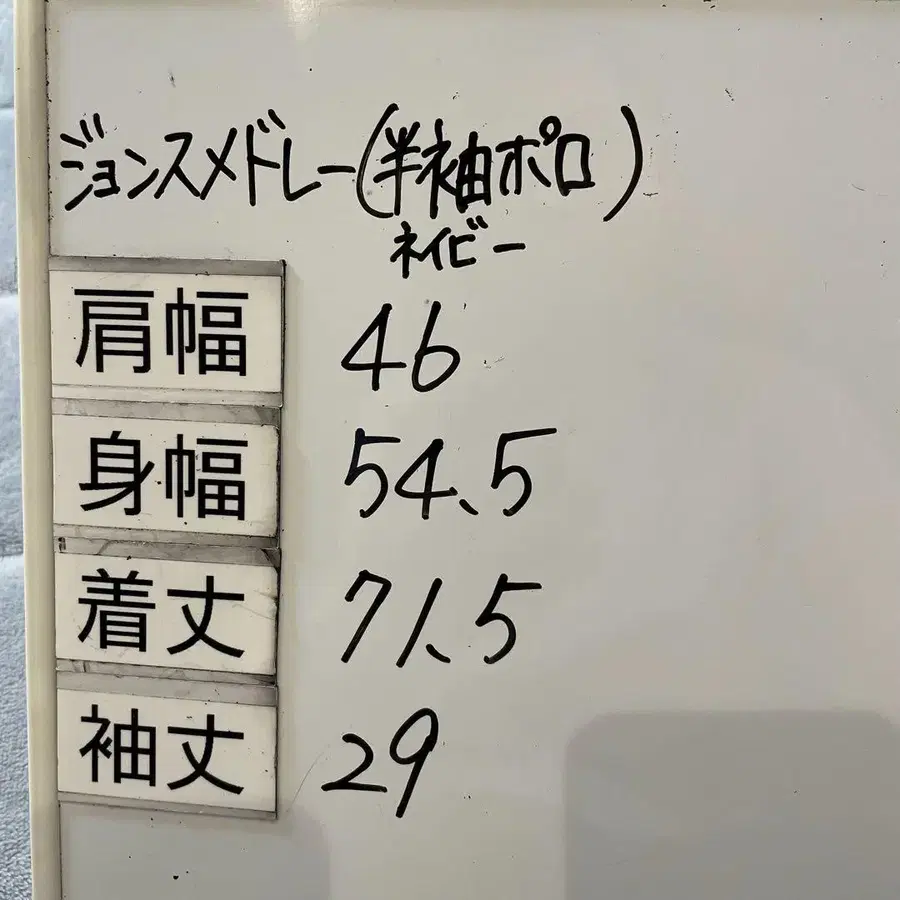 ジョンスメドレー(半袖ポロ)
ネイビー
肩幅 46
身幅 54.5
着丈 71.5
袖丈 29